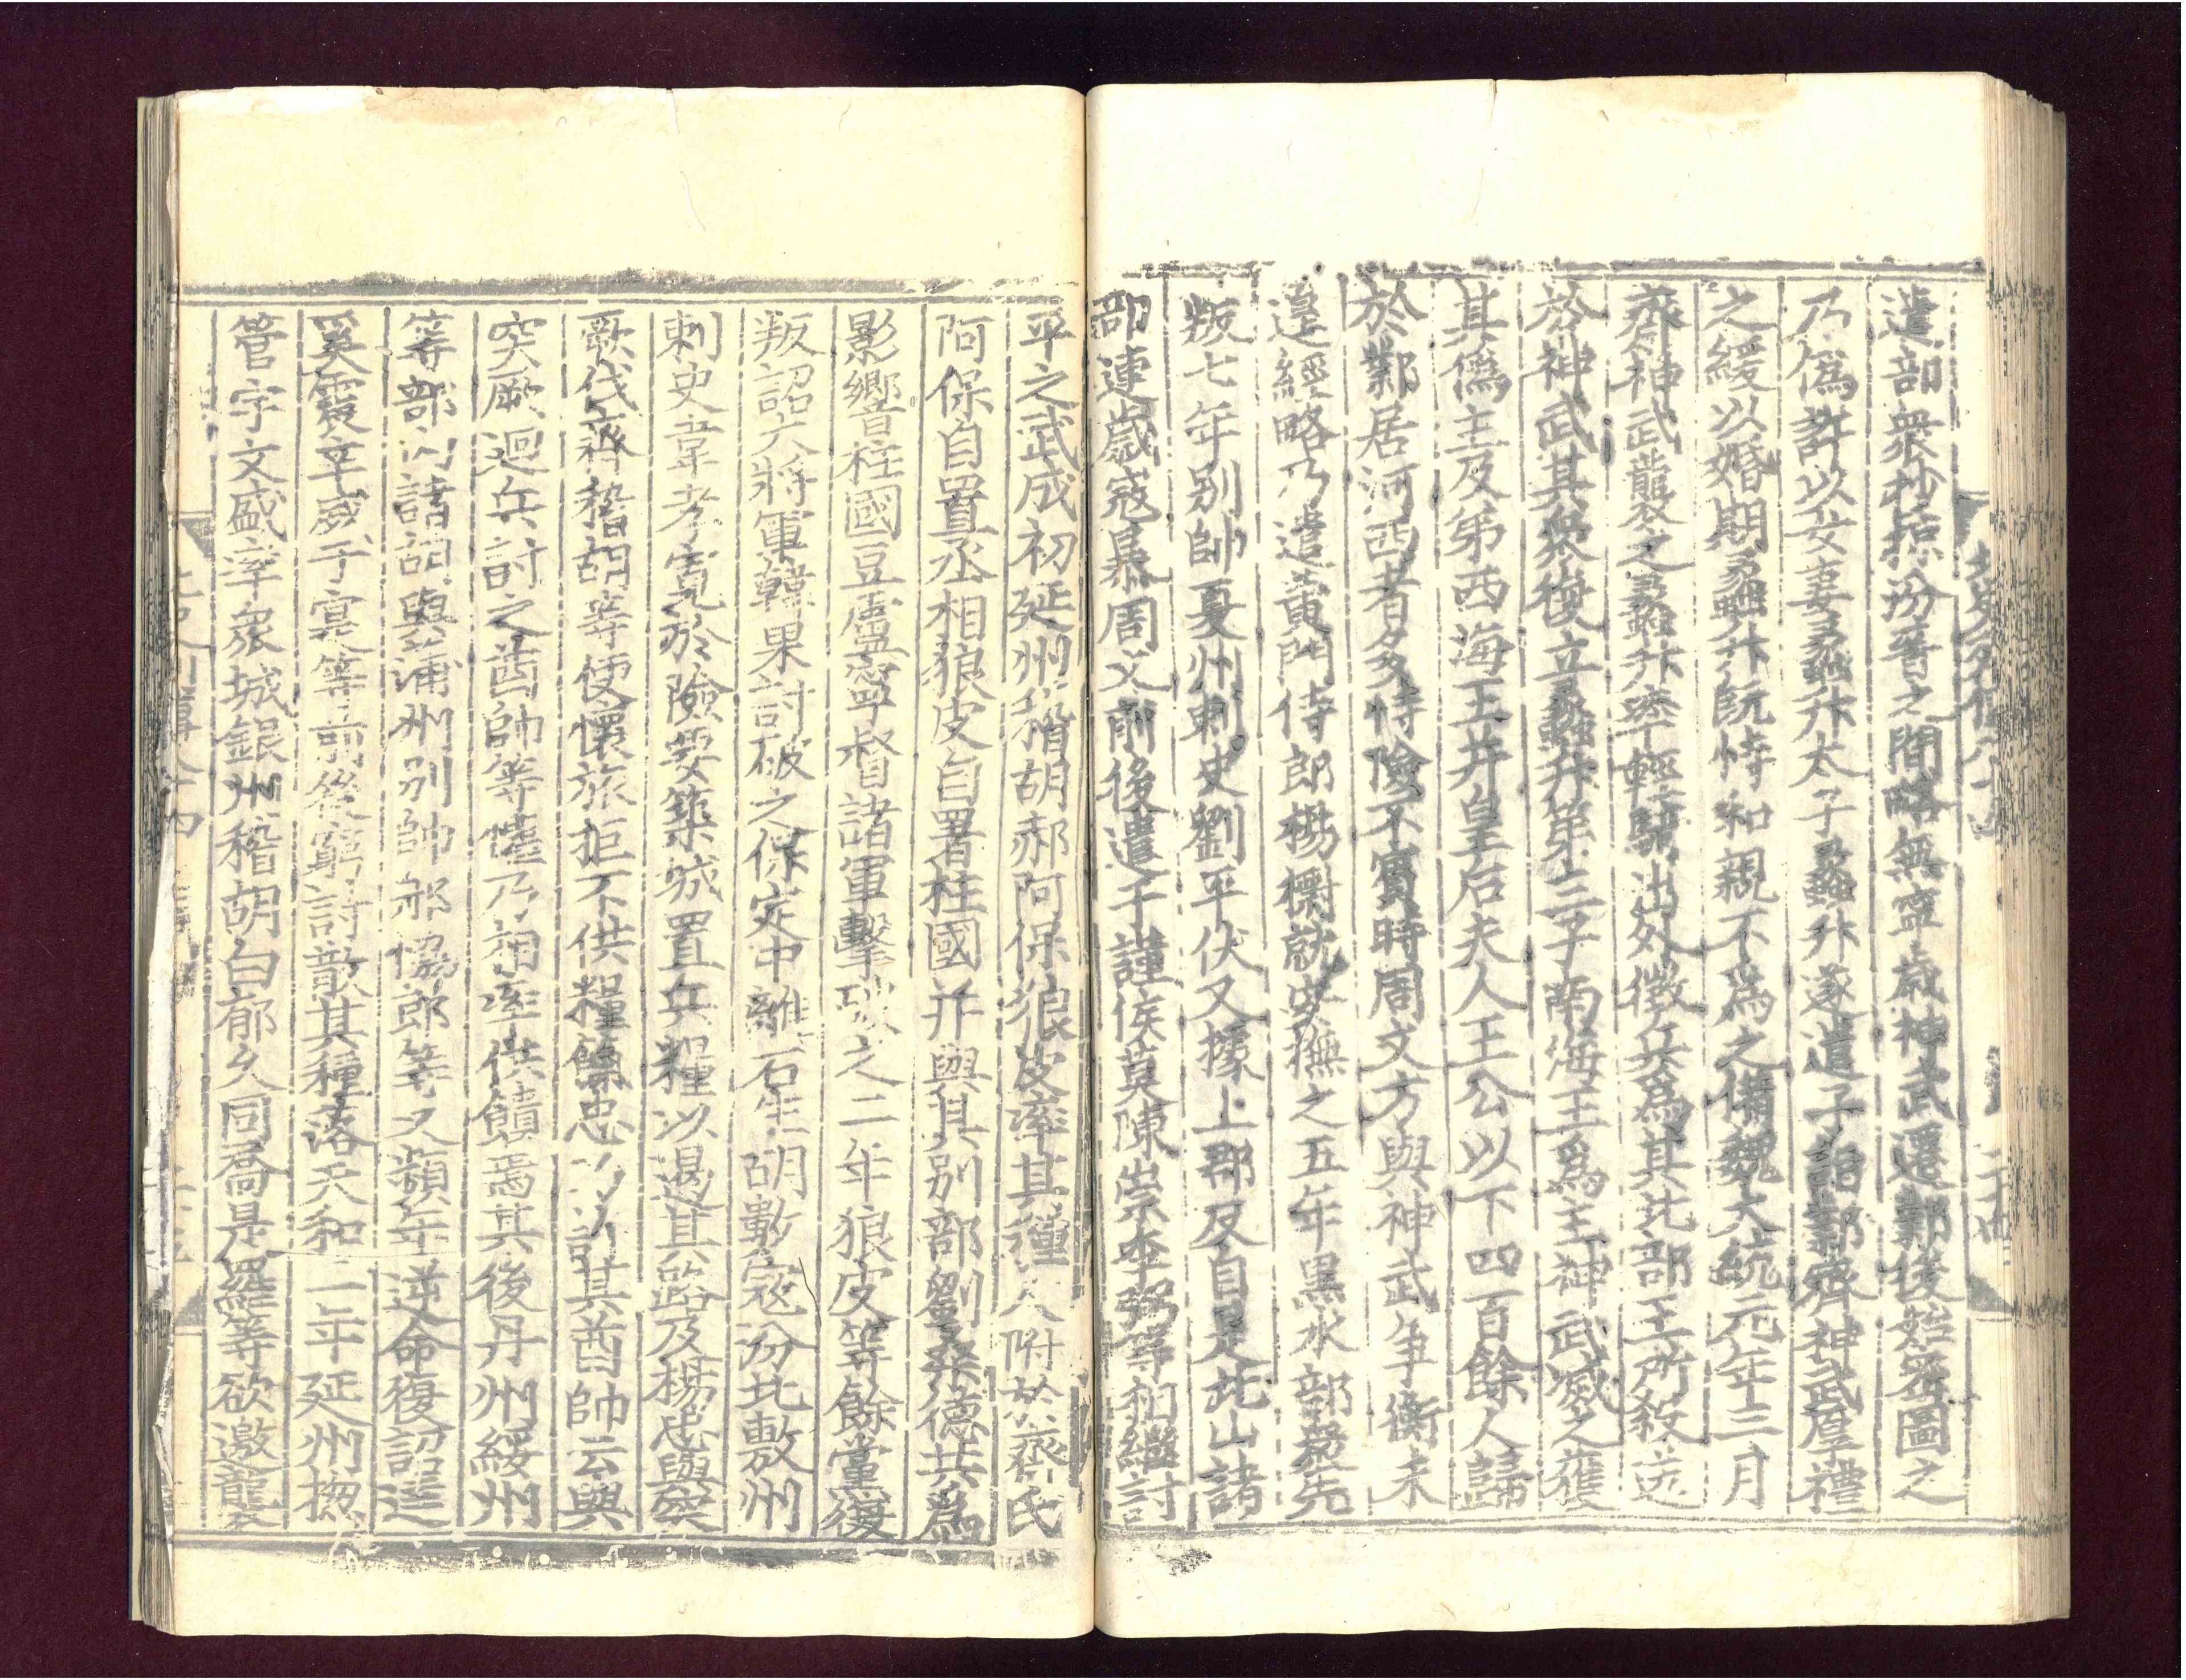 遣部衆抄掠汾晉之間略無寧歲神武遷鄴後始密圖之
乃僞許以女妻蠡升太子蠡升遂遣子詣鄴齊神武厚禮
之緩以婚期蠡升旣恃和親不爲之備魏大統元年三月
齊神武襲之蠡升率輕騎出外徵兵爲其北部王所殺送
於神武其衆復立蠡升第三子南海王爲主神武滅之獲
其僞主及弟西海王并皇后夫人王公以下四百餘人歸
於鄴居河西者多恃險不賓時周文方與神武爭衡未
遑經略乃遣黃門侍郎楊㯹就安撫之五年黑水部衆先
叛七年別帥夏州刺史劉平伏又據上郡反自是北山諸
部連歲寇暴周文前後遣于謹侯莫陳崇李弼等相繼討
平之武成初延州稽胡郝阿保狼皮率其種人附於齊氏
阿保自置丞相狼皮自署柱國并與其別部劉桑德共爲
影響柱國豆盧寧督諸軍擊破之二年狼皮等餘黨復
叛詔大將軍韓果討破之保定中離石生胡數寇汾北敷州
刺史韋孝寬於險要築城置兵糧以遏其路及楊忠與突
厥伐齊稽胡等便懷旅拒不供糧餼忠乃詐其酋帥云與
突厥迴兵討之酋帥等懼乃相率供饋焉其後丹州綏州
等部內諸胡與蒲川別帥郝協郎等又頻年逆命復詔達
奚震辛威于寔等前後窮討散其種落天和二年延州捴
管宇文盛率衆城銀州稽胡白郁久同喬是羅等欲邀襲